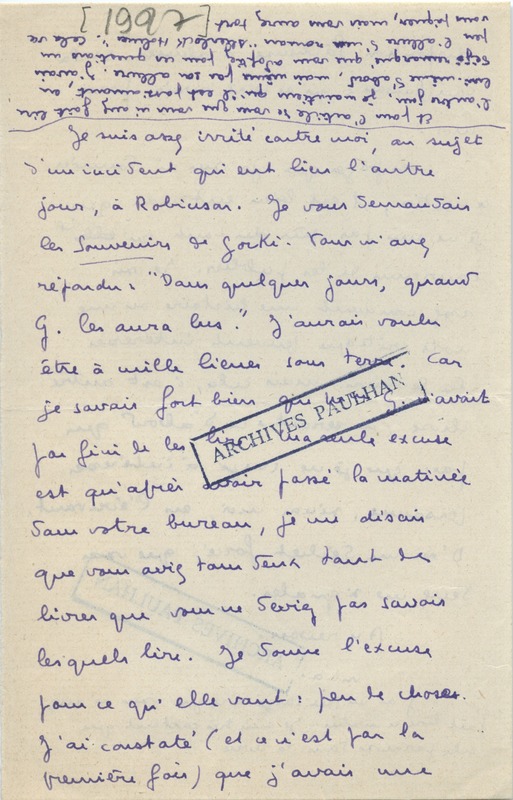 [1927]
Et pour l'article de vous que vous m'avez fait lire
l'autre jour, je maintiens qu'il est passionnant, en
lui-même d'abord, mais même par son allure. J'avais
déjà remarqué que vous adoptez, pour ces questions un
peu l'allure d'un roman "Sherlock Holmes". Cela va
vous piquer, mais vous aurez tort
Je suis assez irrité contre moi, au sujet
d'un incident qui eut lieu l'autre
jour, à Robinson. Je vous demandais
les Souvenirs de Gorki. Vous m'avez
répondu : "Dans quelques jours, quand
G. les aura lus." J'aurais voulu
être à mille lieues sous terre. Car
je savais fort bien que G. n'avait
pas fini de les lire. Ma seule excuse
est qu'après avoir passé la matinée
dans votre bureau, je me disais
que vous aviez tous deux tant de
livres que vous ne deviez pas savoir
lesquels lire. Je donne l'excuse
pour ce qu'elle vaut : peu de choses.
J'ai constaté (et ce n'est pas la
première fois) que j'avais une
ARCHIVES PAULHAN
ARCHIVES PAULHAN